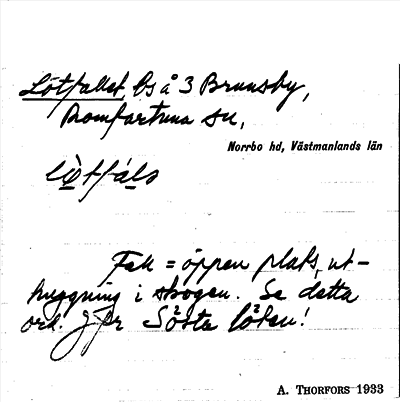 Lötfallet bs å 3 Brunsby,
Romfartuna sn,
Norrbo hd, Västmanlands län
Fall = öppen plats, ut-
huggning i skogen. Se detta
ord. Jfr
A. THORFORS 1933